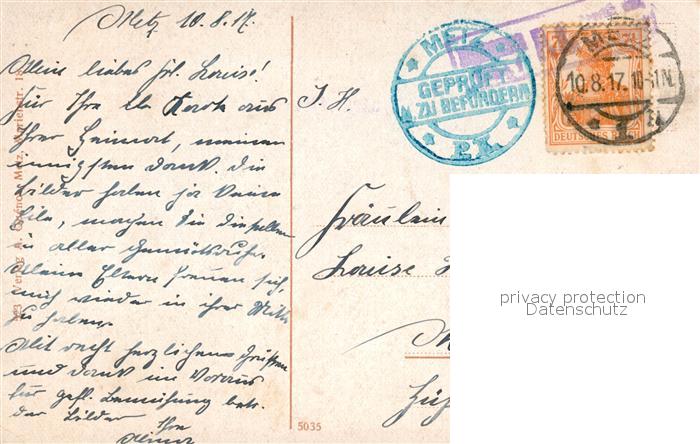 Metz, 10.8.17.
Mein liebes Frl. Louise!
Für Ihre lb Karte aus
Ihrer Heimat, meinen
innigsten Dank. Die
Bilder haben ja keine
Eile, machen Sie dieselben
in aller Gemütsruhe.
Meine Eltern freuen sich,
mich wieder in ihrer Mitte
zu haben.
Mit recht herzlichen Grüßen
und Dank im Voraus
für gefl. Bemühung betr.
der Bilder Ihre
S. H.
Fräulein
Louise
METZ
GEPRÜFT
U. ZU BEFÖRDERN
P.K.
METZ
10.8.17.10-11N.
DEUTSCHES REICH
5035
privacy protection
Datenschutz